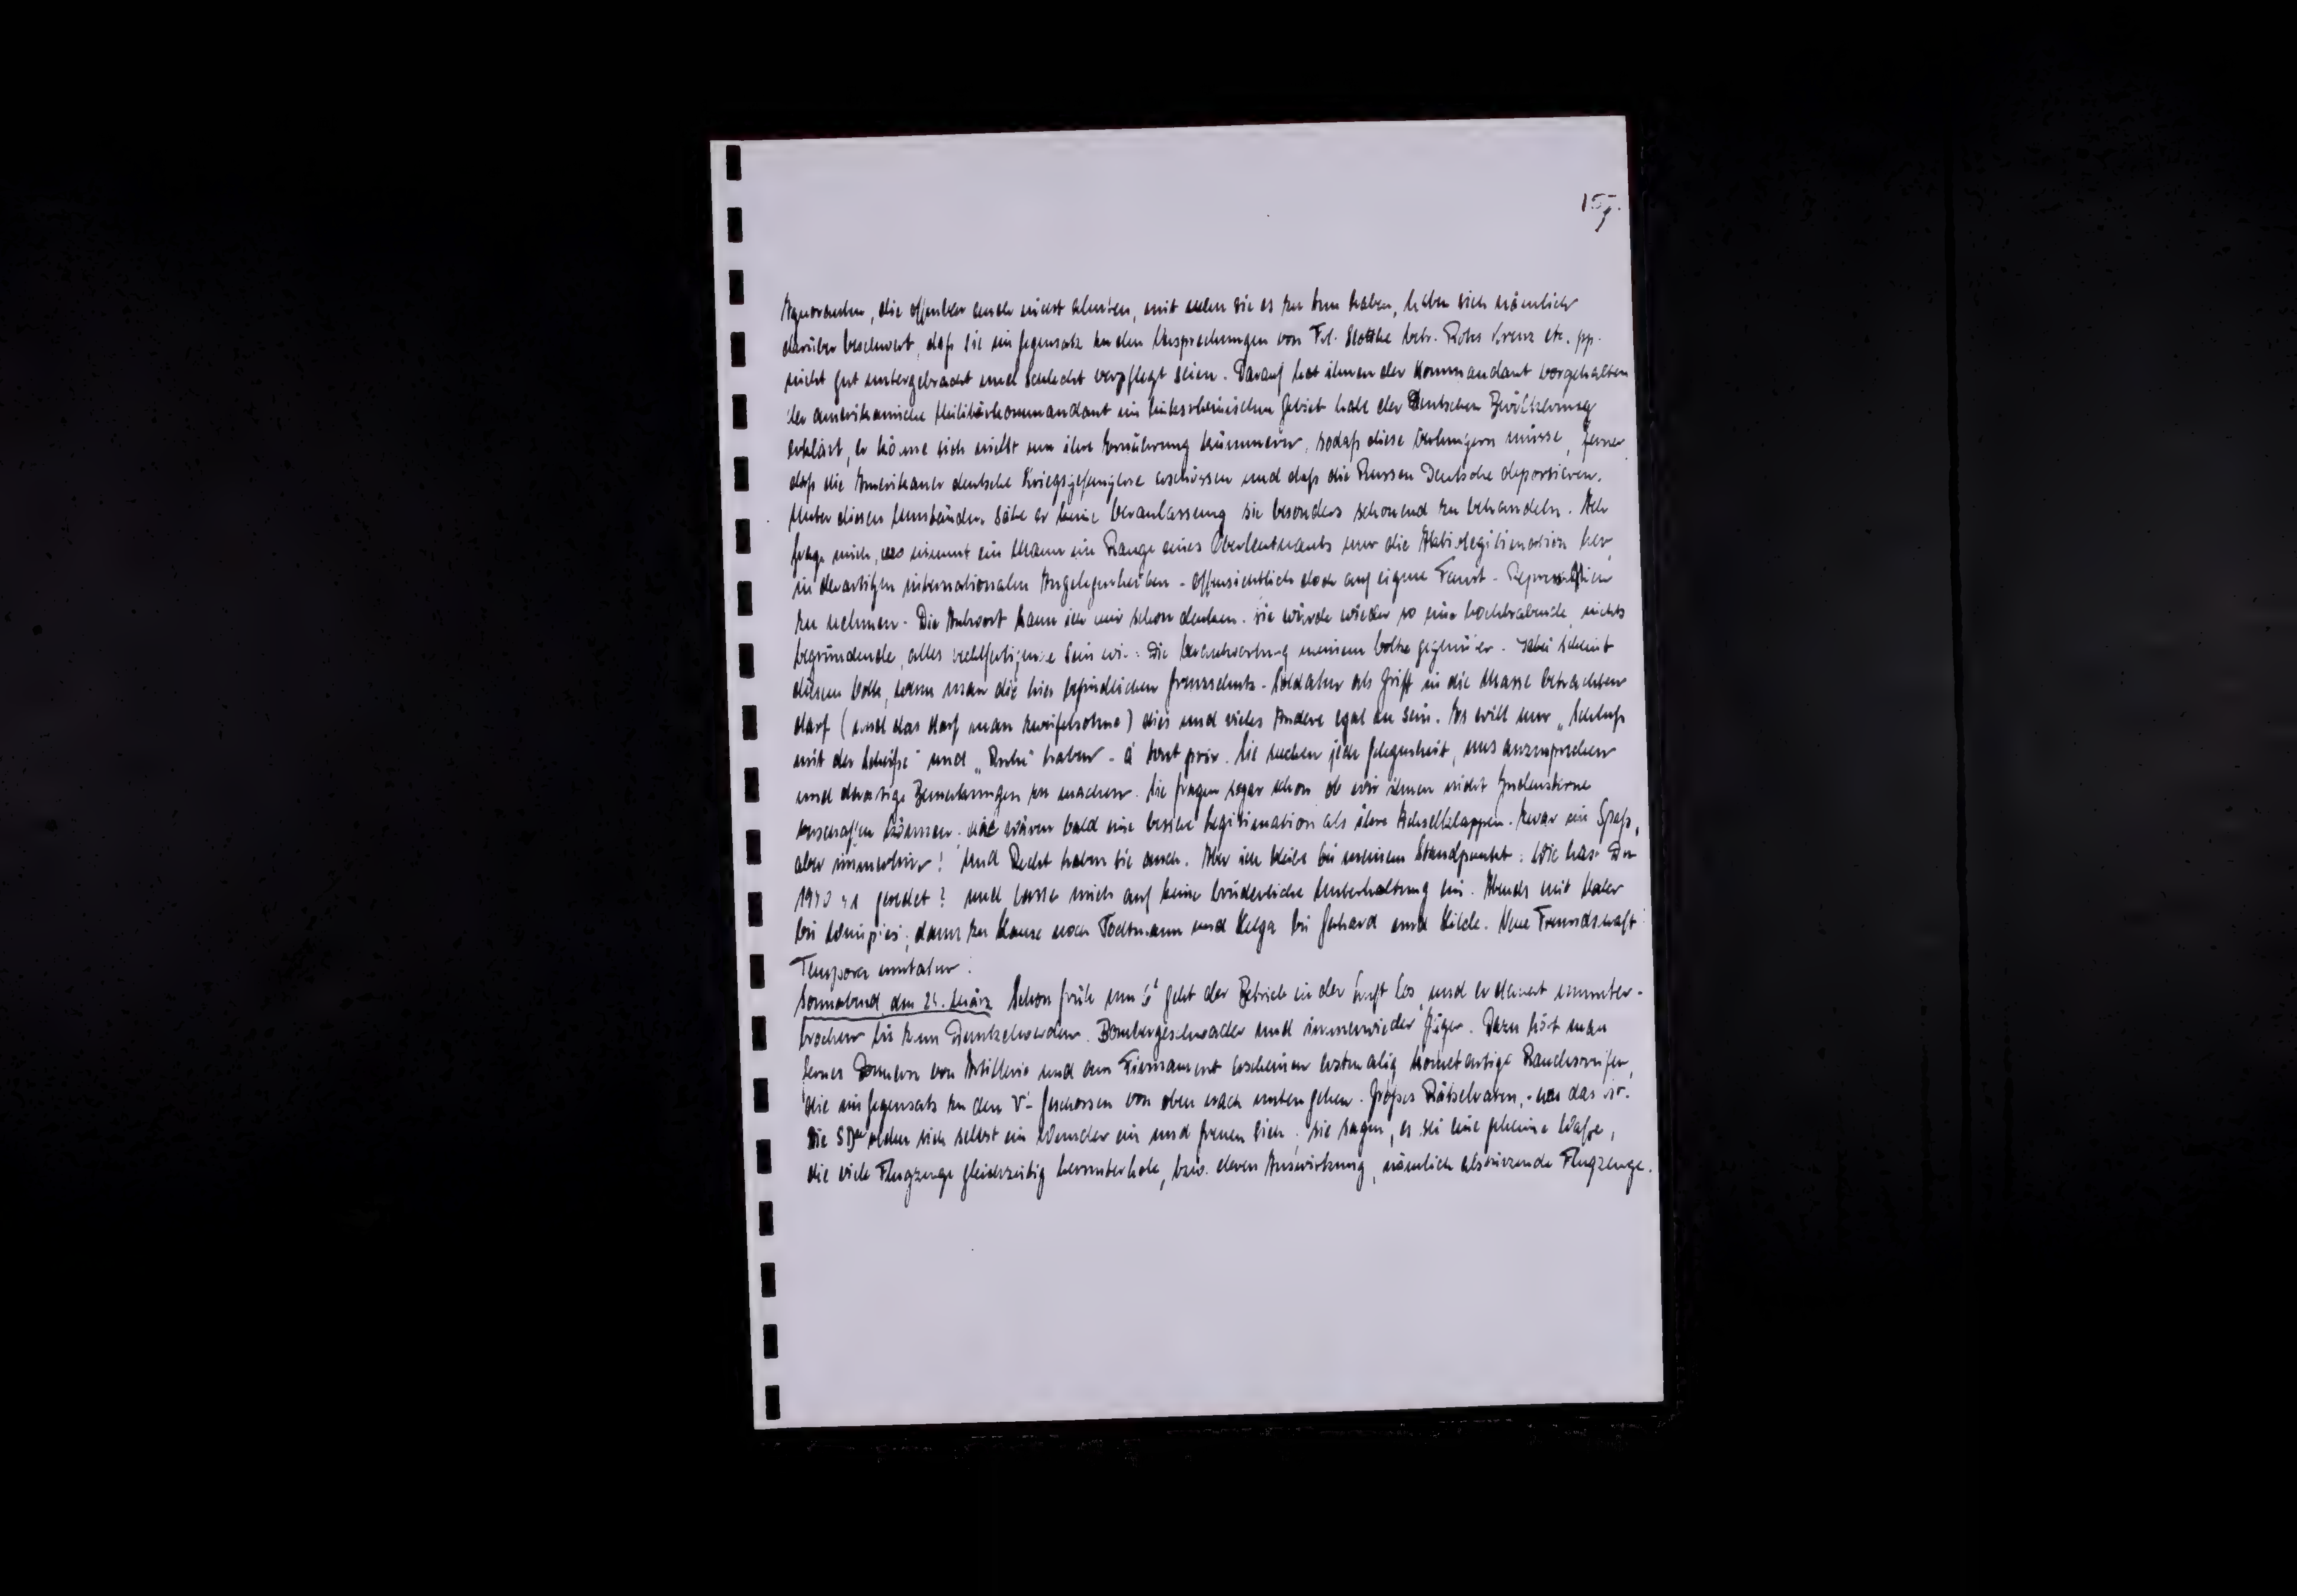 155.
Ignoranten, die offenbar auch nicht ahnten, mit wem sie es zu tun haben, haben sich nämlich
darüber beschwert, daß sie im Gegensatz zu den Versprechungen von Frl. betr. Rotes Kreuz etc. pp.
nicht gut untergebracht und schlecht verpflegt seien. Darauf hat ihnen der Kommandant vorgehalten
der amerikanische Militärkommandant im linksrheinischen Gebiet habe der Deutschen Bevölkerung
erklärt, er könne sich nicht um ihre Ernährung kümmern, sodaß diese verhungern müsse, ferner
daß die Amerikaner deutsche Kriegsgefangene erschössen und daß die Russen Deutsche deportieren.
Unter diesen Umständen sähe er keine Veranlassung sie besonders schonend zu behandeln. Ich
frage mich, wo nimmt ein Mann im Range eines Oberleutnants nur die Aktivlegitimation her,
in derartigen internationalen Angelegenheiten - offensichtlich doch auf eigene Faust - Repressalien
zu nehmen. Die Antwort kann ich mir schon denken. sie würde wieder so eine hochtrabende, nichts
begründende, alles rechtfertigende sein wie: Die Verantwortung meinem Volke gegenüber. Dabei scheint
diesem Volk, wenn man die hier befindlichen Grenzschutz-Soldaten als Griff in die Masse betrachten
darf (und das darf man zweifelsohne) dies und vieles Andere egal zu sein. Es will nur "Schluß
mit der Scheiße" und "Ruhe" haben - à tout prix. Sie suchen jede Gelegenheit, uns anzusprechen
und derartige Bemerkungen zu machen. Sie fragen sogar schon ob wir ihnen nicht Judensterne
verschaffen können. die wären bald eine bessere Legitimation als ihre Achselklappen. Zwar ein Spaß,
aber immerhin! Und Recht haben sie auch. Aber ich bleibe bei meinem Standpunkt: Wie hast Du
1940/41 geredet? und lasse mich auf keine brüderliche Unterhaltung ein. Abends mit Vater
bei dann zu Hause noch Todtmann und Helga bei Gerhard und Hilde. Neue Freundschaft!
Tempora mutantur!
Sonnabend, den 24. März. Schon früh um geht der Betrieb in der Luft los, und er dauert ununter-
brochen bis zum Dunkelwerden. Bombergeschwader und immerwieder Jäger. Dazu hört man
fernes Donnern von Artillerie und am Firmament erscheinen erstmalig kometartige Rauchstreifen,
die im Gegensatz zu den V-Geschossen von oben nach unten gehen. Großes Rätselraten, was das ist.
Die SDer reden sich selbst ein Wunder ein und freuen sich; sie sagen, es sei eine geheime Waffe,
die viele Flugzeuge gleichzeitig herunterhole, bzw. deren Auswirkung, nämlich abstürzende Flugzeuge.